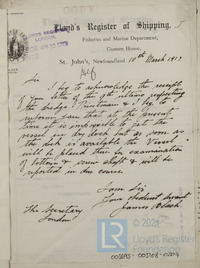 Lloyd's Register of Shipping,
Fisheries and Marine Department,
Custom House,
St. John's, Newfoundland 10th March 1913
Sir
I beg to acknowledge the receipt
of your letter of the 9th ultimo respecting
the dredge "Priestman" & I beg to
inform you that at the present
time it is impossible to get the
vessel in dry dock but as soon as
the dock is available the vessel
will be placed there for examination
of bottom & screw shaft & will be
reported in due course.
I am Sir
Your obedient servant
James
The Secretary
London
© 2021
Lloyd's Register
Foundation